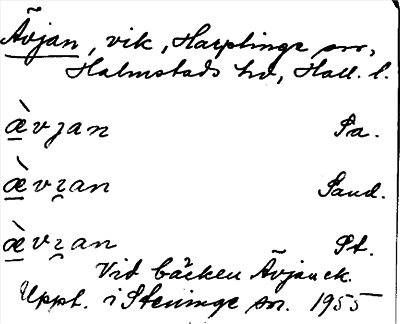 Ãvjan, vik, Harplinge sn,
Halmstads hd, Hall. l.
æ̀vȷan Pa.
æ̀vꝛan Sand.
æ̀vꝛan St.
Vid bäcken Ãvjan ek.
Uppt. i Steninge sn. 1955